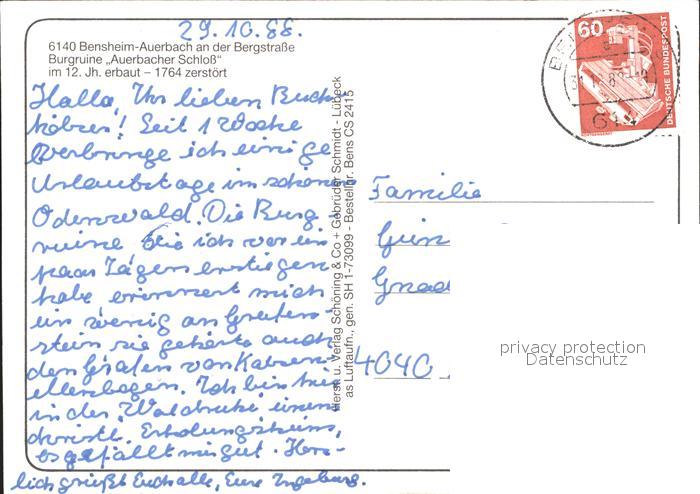 29.10.88.
6140 Bensheim-Auerbach an der Bergstraße
Burgruine „Auerbacher Schloß"
im 12. Jh. erbaut – 1764 zerstört
Hallo, Ihr lieben Buch-
hölzer! Seit 1 Woche
verbringe ich einige
Urlaubstage im schönen
Odenwald. Die Burg
ruine die ich vor ein
paar Tagen erstiegen
habe erinnert mich
ein wenig an Greifen-
stein sie gehörte auch
den Grafen von Katzen-
ellenbogen. Ich bin hier
in der Waldruhe, einem
christl. Erholungsheim,
es gefällt mir gut. Herz-
lich grüßt Euch alle, Eure Ingeburg.
Herst. u. Verlag Schöning & Co + Gebrüder Schmidt - Lübeck
as Luftaufn., gen. SH 1-73099 - Bestellnr. Bens CS 2415
60
DEUTSCHE BUNDESPOST
Familie
Gün
Gnad
4040
privacy protection
Datenschutz